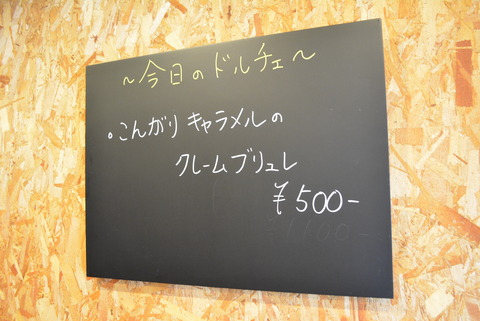 ～今日のドルチェ～
•こんがりキャラメルの
クレームブリュレ
¥500-